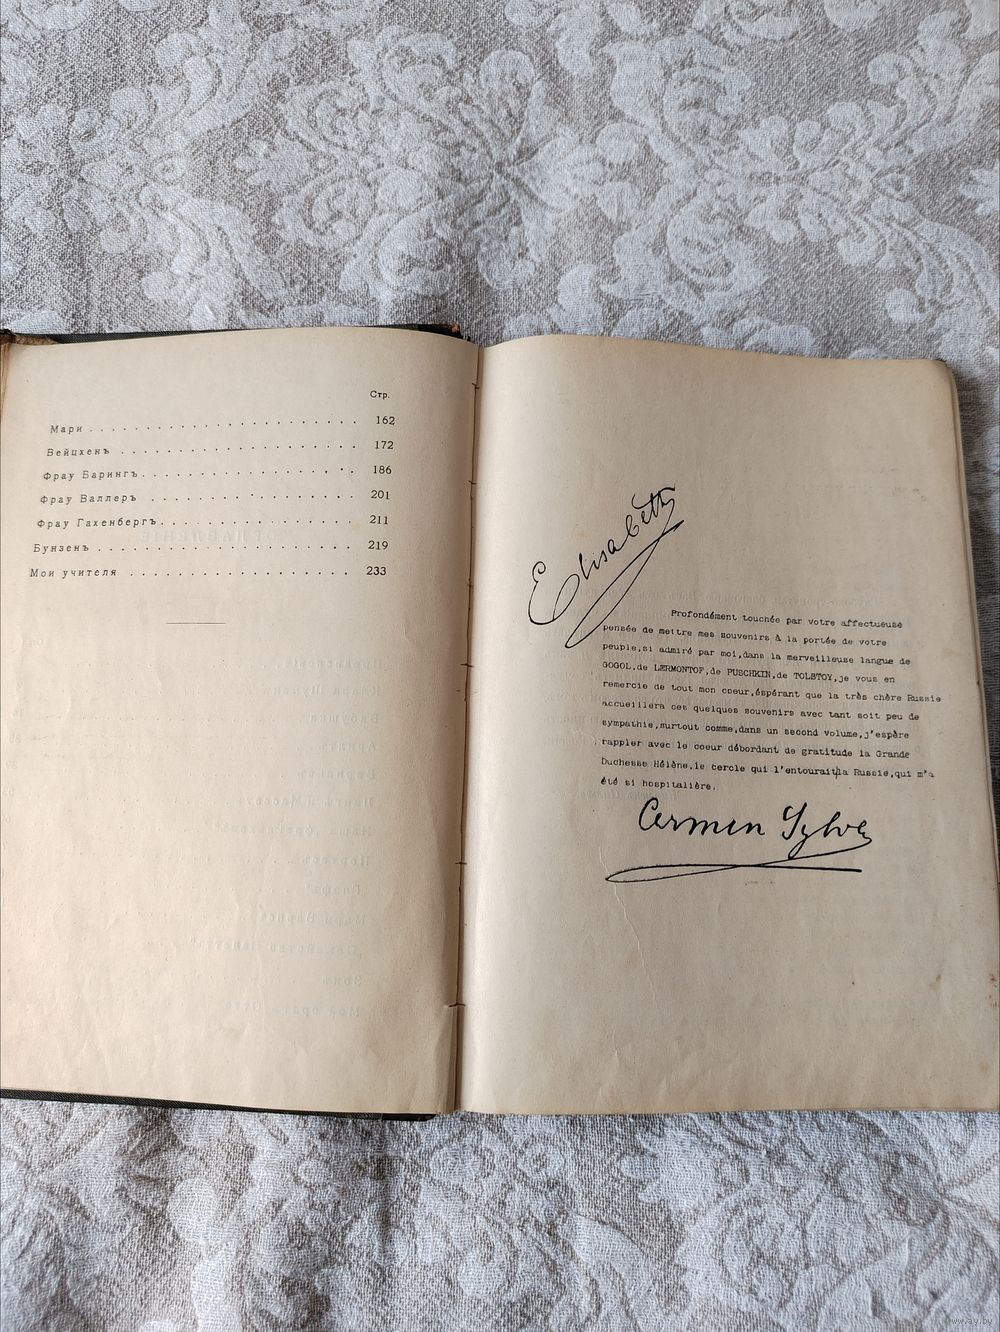 Стр.
Мари . . . . . . . . . . . . . . . . . . . . . . . 162
Вейцхенъ . . . . . . . . . . . . . . . . . . . . . 172
Фрау Барингъ. . . . . . . . . . . . . . . . . . . 186
Фрау Валлеръ . . . . . . . . . . . . . . . . . . . 201
Фрау Гахенбергъ. . . . . . . . . . . . . . . . . . 211
Бунзенъ . . . . . . . . . . . . . . . . . . . . . . 219
Мои учителя . . . . . . . . . . . . . . . . . . . . 233
Elisabeth
Profondément touchée par votre affectueuse
pensée de mettre mes souvenirs à la portée de votre
peuple,si admiré par moi,dans la merveilleuse langue de
GOGOL,de LERMONTOF,de PUSCHKIN,de TOLSTOY,je vous en
remercie de tout mon coeur,éspérant que la très chère Russie
accueillera ces quelques souvenirs avec tant soit peu de
sympathie,surtout comme,dans un second volume,j'espère
rappler avec le coeur débordant de gratitude la Grande
Duchesse Hélène,le cercle qui l'entourait,la Russie,qui m'a
été si hospitalière.
Carmen Sylva
www.ay.by